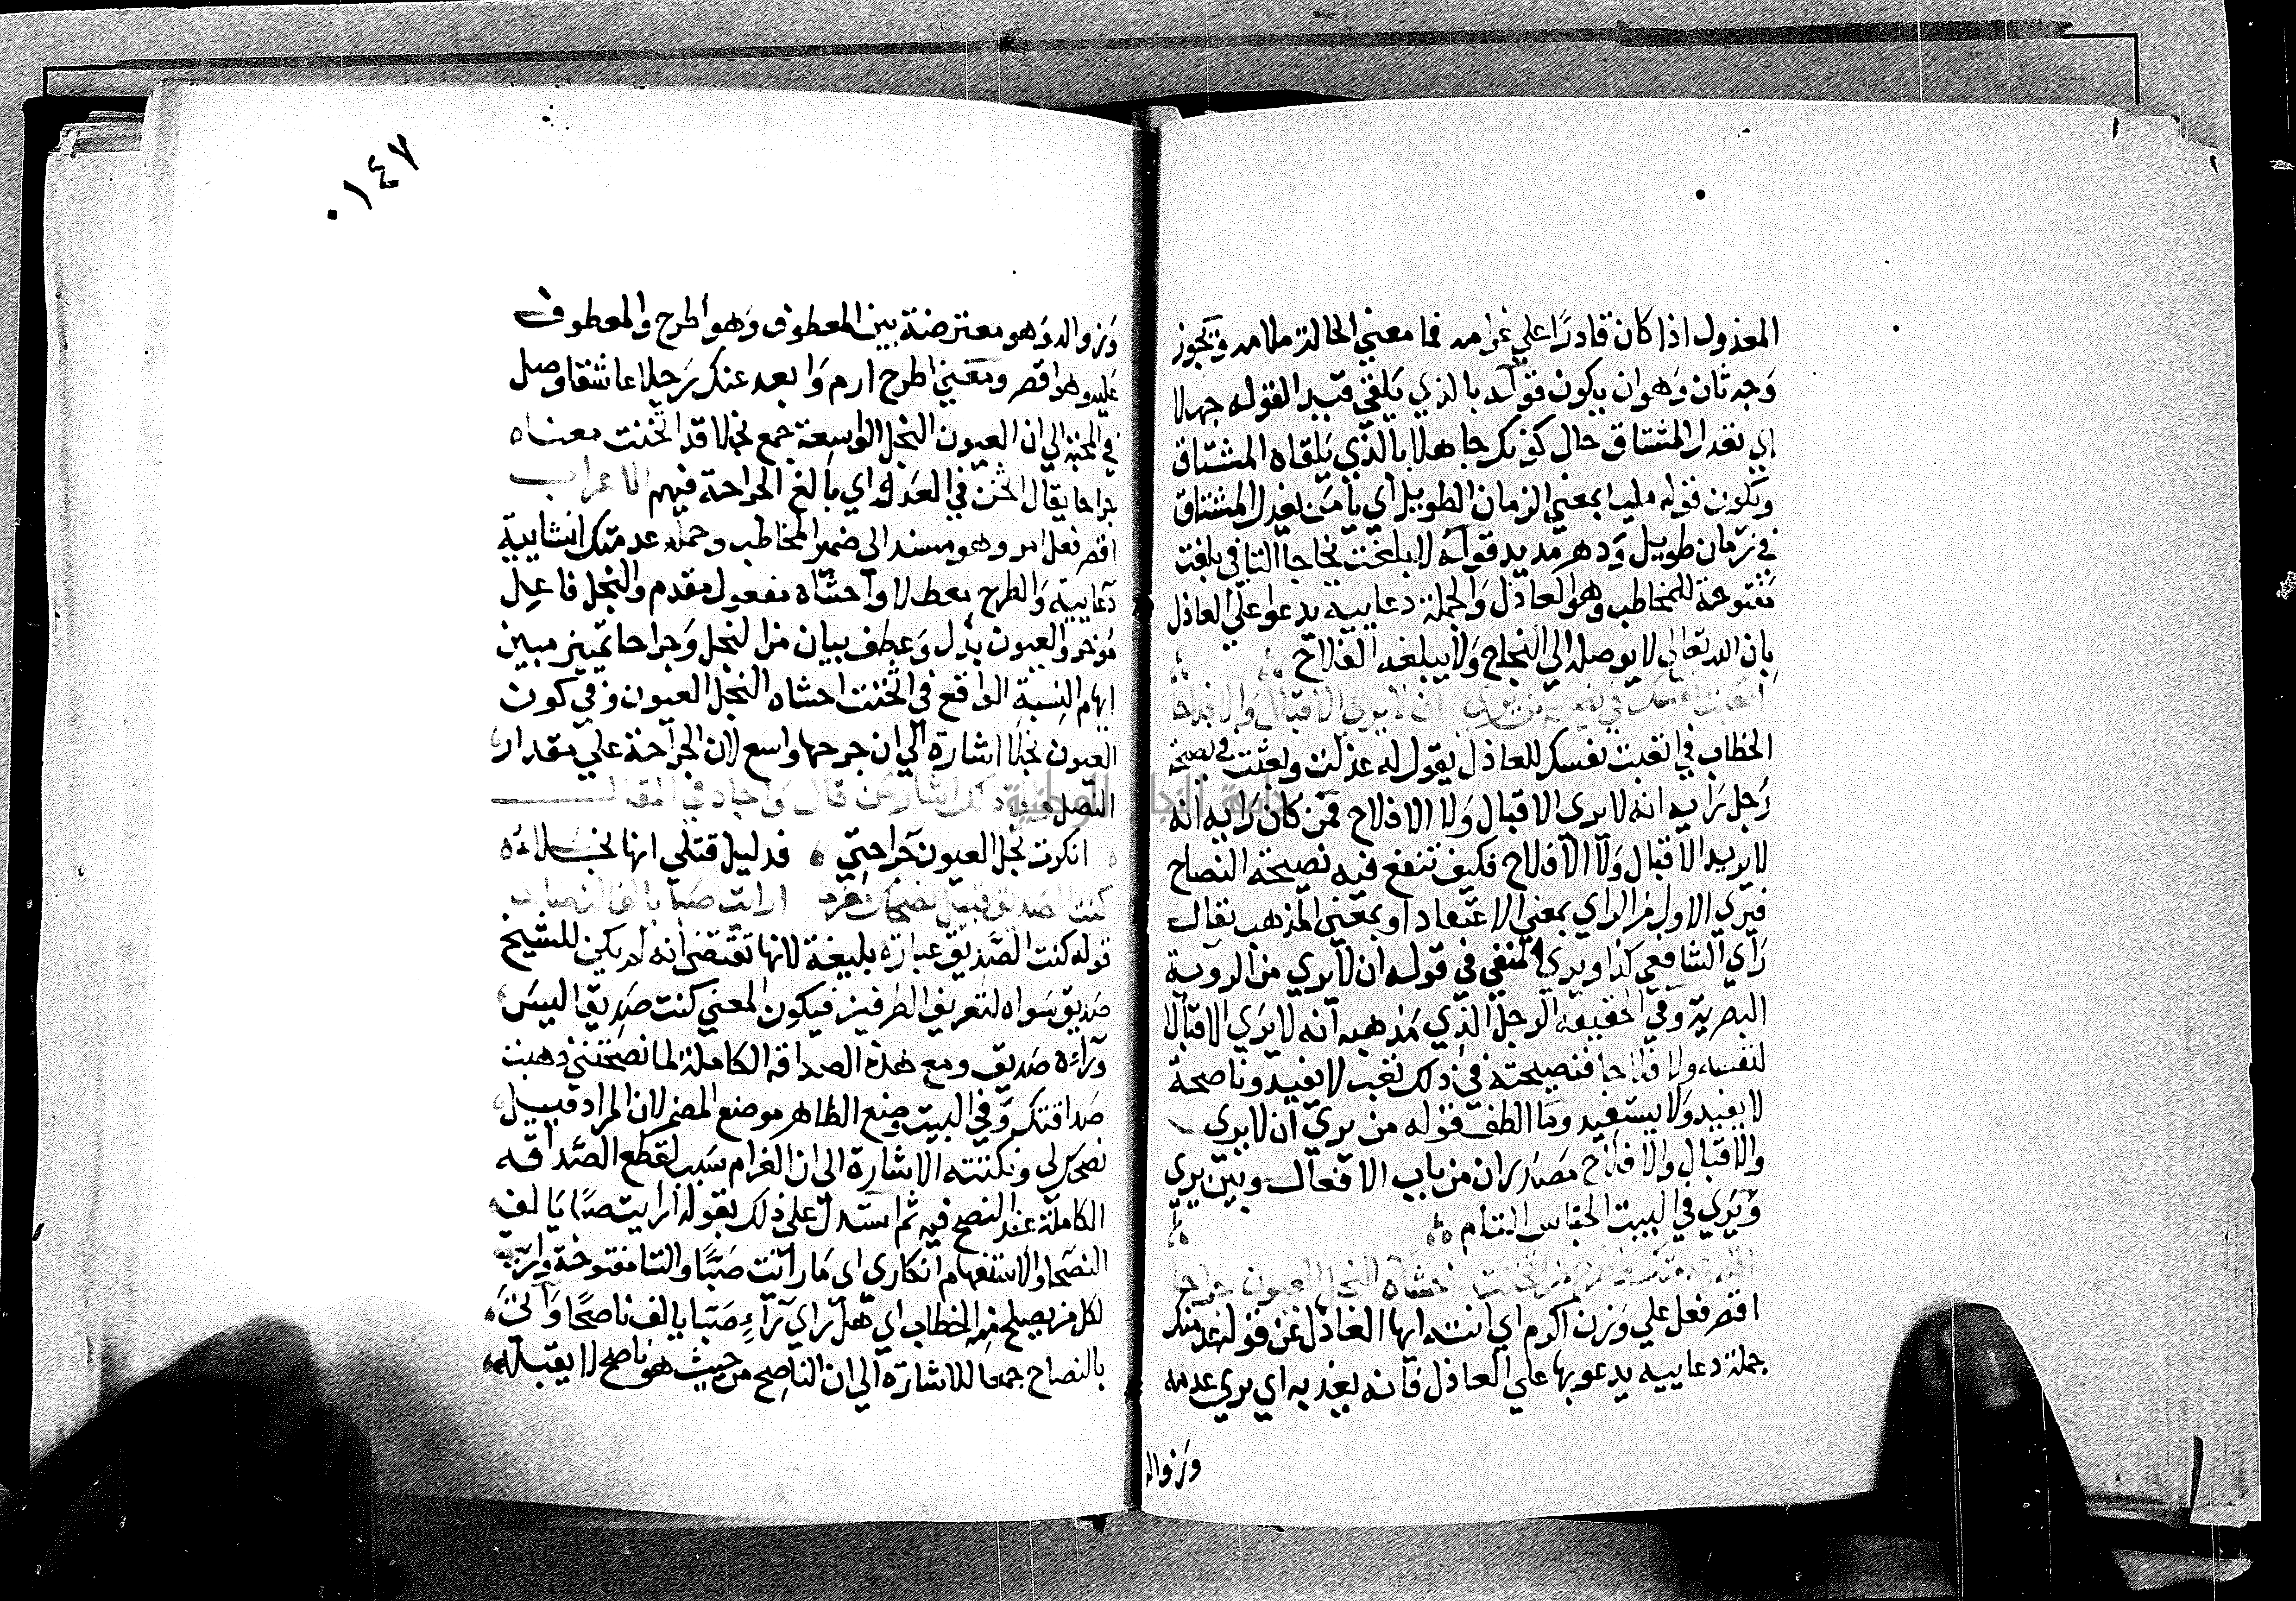 المعذول اذا كان قادرًا علي غرامه فما معني الحالة ملامه ويجوز
وجه ثان وهو ان يكون قوله بالذي يلقي قيد القوله جهلا
اي تعذل المشتاق حال كونك جاهلا بالذي يلقاه المشتاق
ويكون قوله مليا بمعني الزمان الطويل اي يا من يعذل المشتاق
في زمان طويل ودهر مديد قوله لا بلغت نجاحا التا في بلغت
مفتوحة للمخاطب وهو العاذل والجملة دعاييه يدعوا علي العاذل
بان الله تعالي لا يوصله الي النجاح ولا يبلغه الفلاح
اتعبت نفسك في نصيحة من يري ان لا يري الاقبال والافلاحا
الخطاب في اتعبت نفسك للعاذل يقول له عذلت وتعبت في نصيحة
رجل رايه انه لا يري الاقبال ولا الافلاح فمن كان رايه انه
لا يريد الاقبال ولا الافلاح فكيف تنفع فيه نصيحة النصاح
فيري الاول من الراي بمعني الاعتقاد او بمعني المذهب تقال
راي الشافعي كذا ويري المنفي في قوله ان لا يري من الروية
البصرية وفي الحقيقه الرجل الذي مذهبه انه لا يري الاقبالا
لنفسه ولا فلاحا فنصيحته في ذلك تعب لا يفيد وناصحه
لا يفيد ولا يستفيد وما الطف قوله من يري ان لا يري
والاقبال والافلاح مصدران من باب الافعال وبين يري
ويري في البيت الجناس التام
اقصر عدمتك واطرح من اثخنت احشاه النجل العيون جراحا
اقصر فعل علي وزن اكرم اي انته ايها العاذل عن قوله عدمتك
جملة دعاييه يدعو بها علي العاذل فانه يعذبه اي يري عدمه
وزواله
١٤٧
وزواله وهو معترضة بين المعطوف وهو اطرح والمعطوف
عليه وهو اقصر ومعني اطرح ارم وابعد عنك رجلا عاشقا وصل
في المحبة الي ان العيون النجل الواسعة جمع نجلا قد اثخنت معناه
جراحا يقال اثخن في العدو اي بالغ الجراحة فيهم الاعراب
اقصر فعل امر وهو مسند الي ضمير المخاطب وجملة عدمتك انشاييه
دعاييه والطرح معطلا واحشاه مفعول مقدم والنجل فاعل
موخر والعيون بدل وعطف بيان من النجل وجراحا تمييز مبين
ابهام النسبة الواقع في اثخنت احشاه النجل العيون وفي كون
العيون نجلا اشارة الي ان جرحها واسع لان الجراحة علي مقدار
النصل ذلك اشار من قال واجاد في المقال
انكرت نجل العيون جراحتي فدليل قتلي انها نجلاء
كنت الصديق قبيل نصحك مغرما ارايت صبا يالف النصاحا
قوله كنت الصديق عبارة بليغة لانها تقتضي انه لم يكن للشيخ
صديق سواه لتعريف الطرفين فيكون المعني كنت صديقا ليس
وراءه صديق ومع هذه الصداقة الكاملة لما نصحتني ذهبت
صداقتك وفي البيت وضع الظاهر موضع المضمر لان المراد قبيل
نصحك لي ونكتته الاشارة الي ان الغرام سبب لقطع الصداقه
الكاملة عند النصح فيه ثم استدل علي ذلك بقوله ارايت صبا يالف
النصحا والاستفهام انكاري اي ما رايت صبًا والتا مفتوحة
لكل من يصلح منه الخطاب اي هل راي راءٍ صبا يالف ناصحًا
بالنصاح جمعا للاشارة الي ان الناصح من حيث هو ناصح لا يقبله